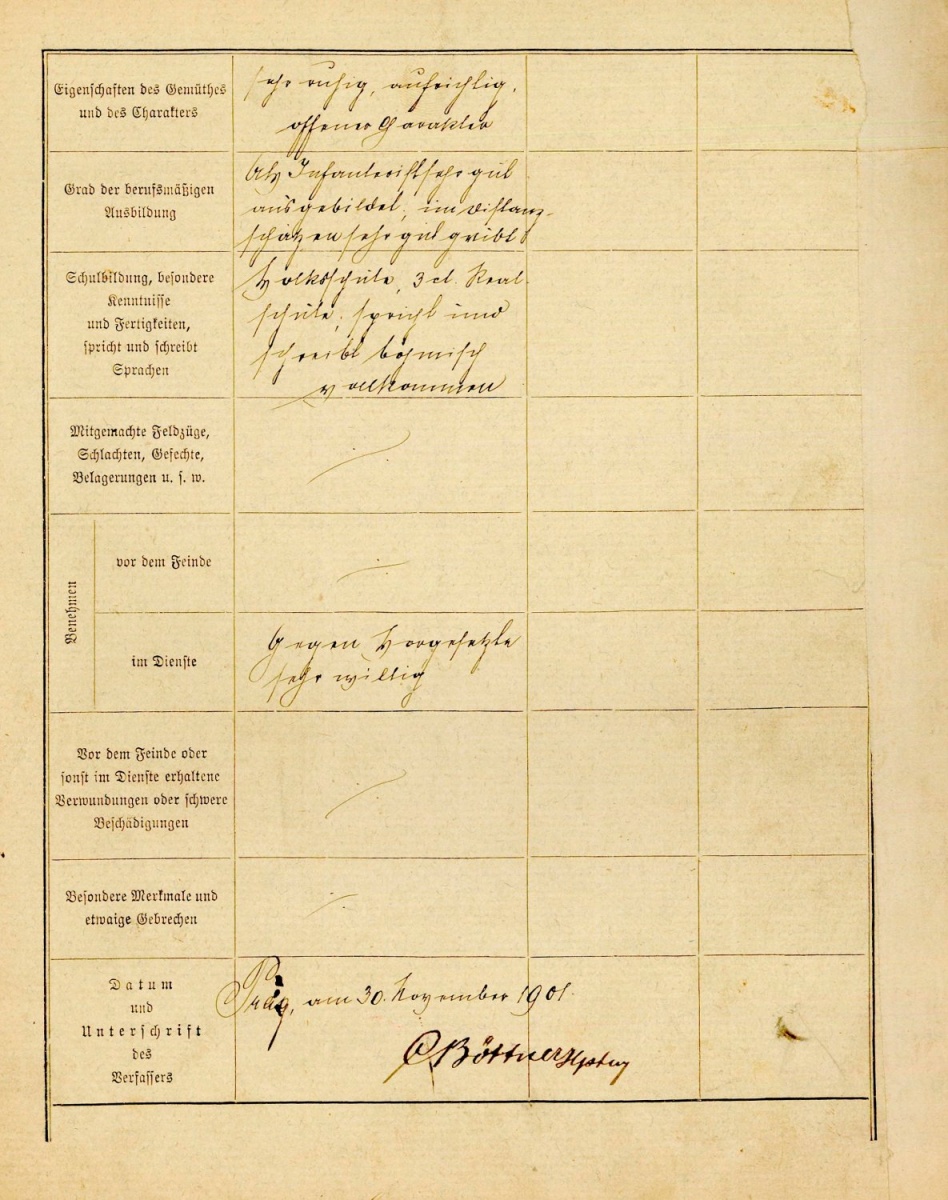 Eigenschaften des Gemüthes
und des Charakters
sehr ruhig, aufrichtig,
offener Carakter
Grad der berufsmäßigen
Ausbildung
Als Infanterist sehr gut
ausgebildet, im Distanz-
schäzen sehr gut geübt
Schulbildung, besondere
Kenntnisse
und Fertigkeiten,
spricht und schreibt
Sprachen
Volksschule, 3 cl. Real-
schule, spricht und
schreibt böhmisch
vollkommen
Mitgemachte Feldzüge,
Schlachten, Gefechte,
Belagerungen u. s. w.
Benehmen
vor dem Feinde
im Dienste
Gegen Vorgesetzte
sehr willig
Vor dem Feinde oder
sonst im Dienste erhaltene
Verwundungen oder schwere
Beschädigungen
Besondere Merkmale und
etwaige Gebrechen
Datum
und
Unterschrift
des
Verfassers
Prag, am 30. November 1901.
Böttner